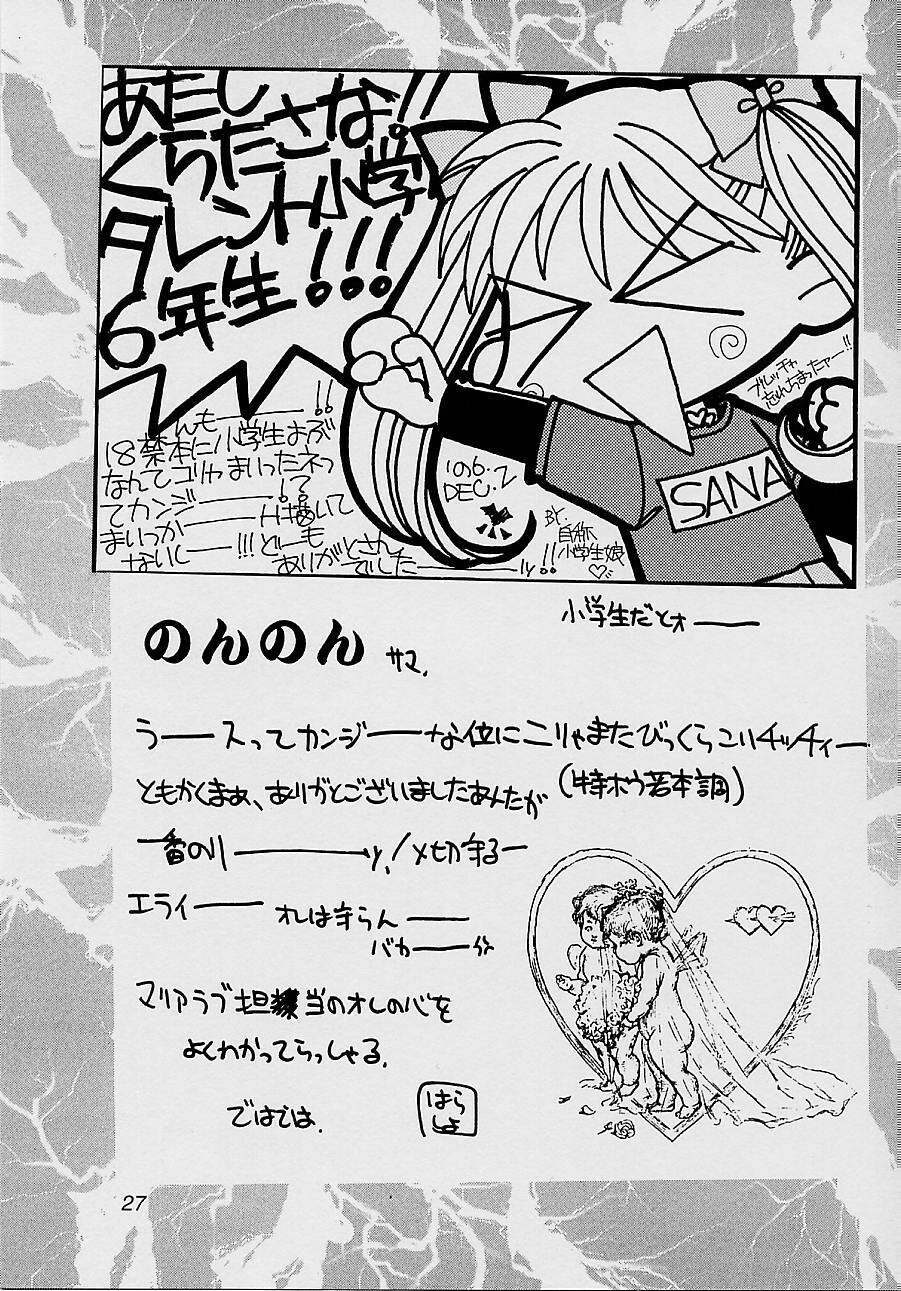 あたし
くらたさな!!
タレント小学
6年生!!!
んもー!!
18禁本に小学生よぶ
なんてコリャまいったネっ
てカンジー!?て
まいっかーH描いて
ないしー!!!どーも
ありがとさん
でしたーッ!!
'96.
DEC.2
BY
自称
小学生娘♡
SANA
オレッチャ
忘れちまったァー!!
小学生だとォー
のんのん サマ.
うースってカンジーな位にこりゃまたびっくらこいチッチィー
ともかくまぁ、ありがとございましたあんたが
(特ボウ若本調)
一番のりーッ!〆切守るー
エライー オレは守らんー
バカー
マリアラブ担当のオレの心を
よくわかってらっしゃる.
ではでは.
はら
しよ
27